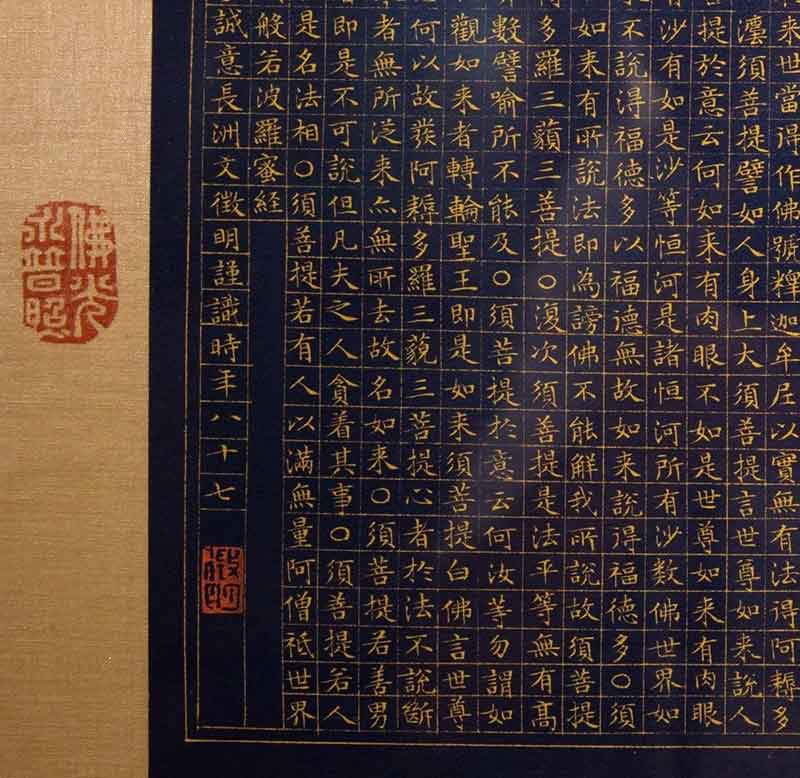 来世當得作佛號釋迦牟尼以實無有法得阿耨多
須善提譬如人身上大須善提言世尊如来說人
提於意云何如来有肉眼不如是世尊如来有肉眼
沙有如是沙等恒河是諸恒河所有沙數佛世界如
不說得福德多以福德無故如来說得福德多○須
如来有所說法即為謗佛不能解我所說故須菩提
多羅三藐三善提○復次須善提是法平等無有高
數譬喻所不能及○須菩提於意云何汝等勿謂如
觀如来者轉輪聖王即是如来須菩提白佛言世尊
何以故發阿耨多羅三藐三菩提心者於法不說斷
者無所從来亦無所去故名如来○須菩提若善男
即是不可說但凡夫之人貪着其事○須善提若人
是名法相○須善提若有人以滿無量阿僧祇世界
般若波羅蜜經
誠意長洲文徵明謹識時年八十七
徵明
佛光
永普照